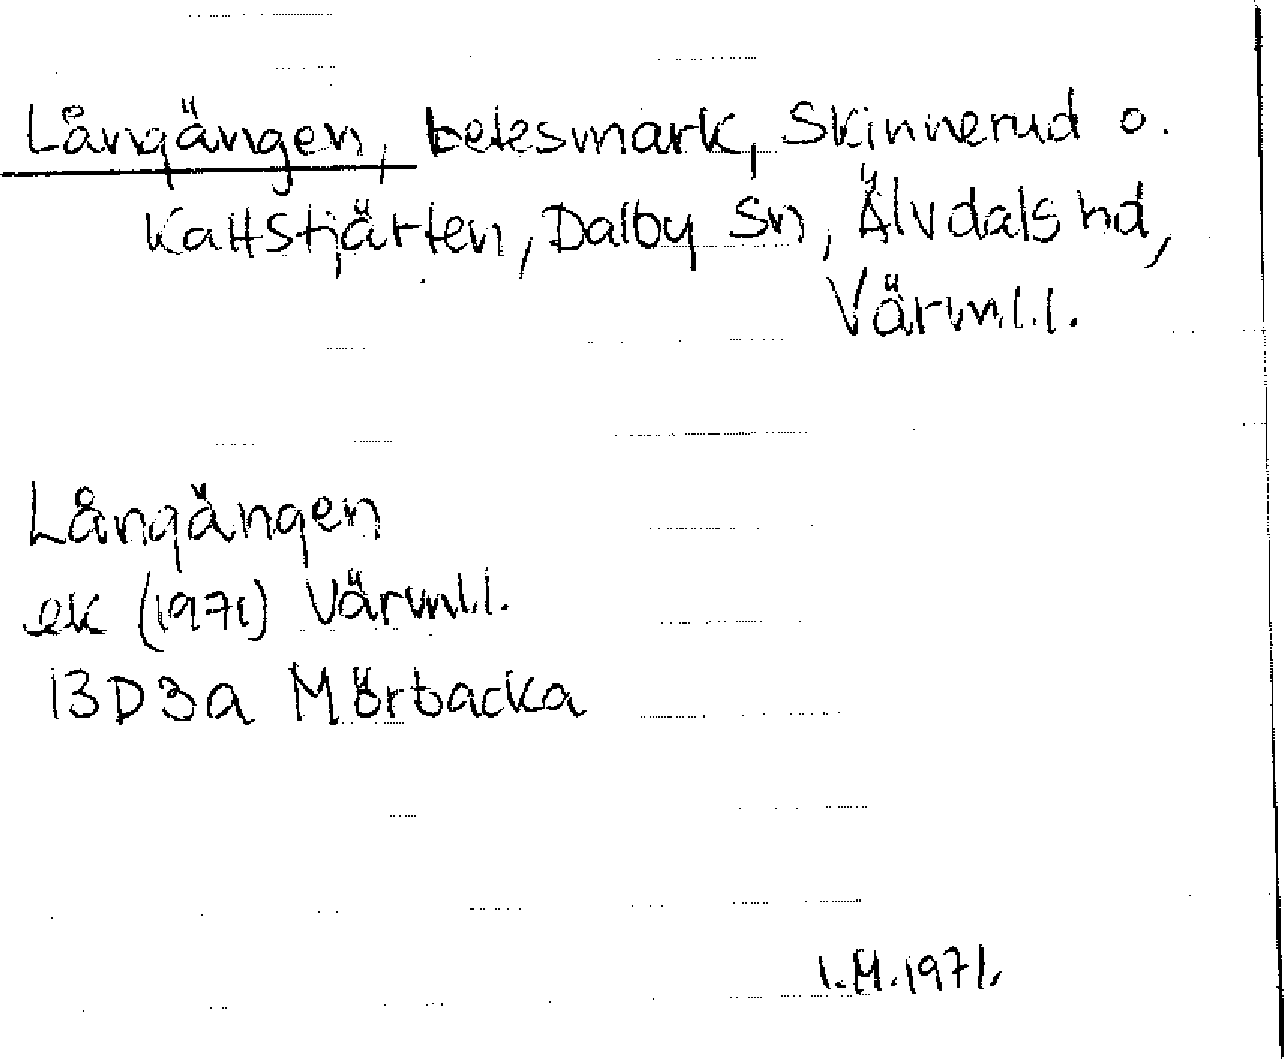 Långängen, betesmark, Skinnerud o.
Kattstjärten, Dalby Sn, Älvdals hd,
Värml.l.
Långängen
ek (1971) Värml.l.
13D3a Mörbacka
I.M.1971.